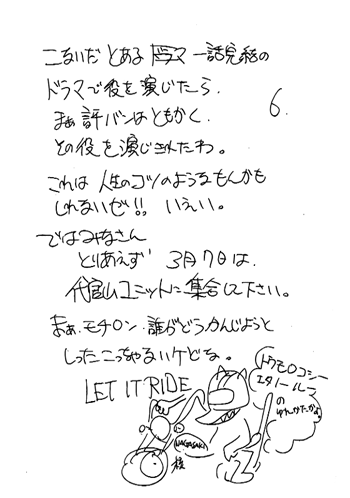 こないだ とある ドラマ 一話完結の
ドラマで役を演じたら、
まぁ 評バンはともかく、
その役を演じきれたわ。
6.
これは 人生のコツのようなもんかも
しれないぜ!! いえい。
ではみなさん
とりあえず 3月7日は、
代官山ユニットに集合して下さい。
まぁ、モチロン、誰がどうかんじようと
しったこっちゃないケどな。
LET IT RIDE
トウモロコシー
エタノールー
NAGASAKI